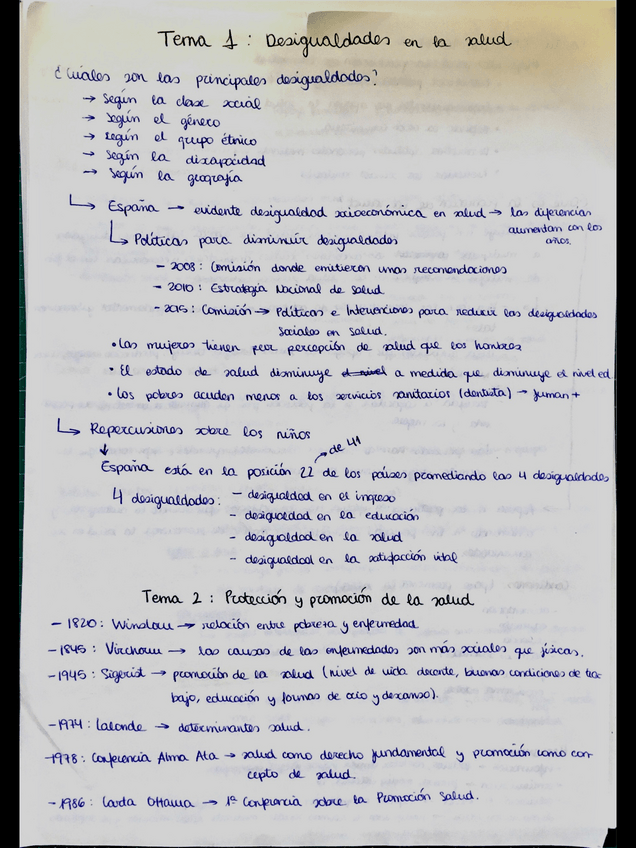 Tema 1: Desigualdades en la salud
¿Cuáles son las principales desigualdades?
→ Según la clase social
→ Según el género
→ Según el grupo étnico
→ Según la discapacidad
→ Según la geografía
↳ España → evidente desigualdad socioeconómica en salud → las diferencias
aumentan con los
años.
↳ Políticas para disminuir desigualdades
- 2008: Comisión donde emitieron unas recomendaciones
- 2010: Estrategia Nacional de salud
- 2015: Comisión → Políticas e Intervenciones para reducir las desigualdades
Sociales en Salud.
• Las mujeres tienen peor percepción de salud que los hombres
• El estado de salud disminuye a medida que disminuye el nivel ed
• Los pobres acuden menos a los servicios sanitarios (dentista) → fuman +
↳ Repercusiones sobre los niños
↓
→ de 41
España está en la posición 22 de los países promediando las 4 desigualdades
4 desigualdades: - desigualdad en el ingreso
- desigualdad en la educación
- desigualdad en la salud
- desigualdad en la satisfacción vital
Tema 2: Protección y promoción de la salud
- 1820: Winslow → relación entre pobreza y enfermedad
- 1845: Virchow → las causas de las enfermedades son más sociales que físicas.
- 1945: Sigerist → promoción de la salud (nivel de vida decente, buenas condiciones de tra-
bajo, educación y formas de ocio y descanso).
- 1974: Lalonde → determinantes salud.
- 1978: Conferencia Alma Ata → salud como derecho fundamental y promoción como con-
cepto de salud.
- 1986: Carta Ottawa → 1ª Conferencia sobre la Promoción Salud.